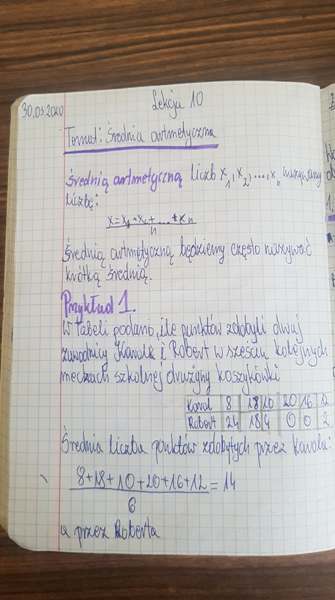 30.03.2020 Lekcja 10
Temat: Średnia artmetyczna
Średnią artmetyczną liczb x1, x2, ..., xn nazywamy
liczbę:
x = x1 + x2 + ... + xn
n
Średnią artmetyczną będziemy często nazywać
krótką średnią.
Przykład 1.
W tabeli podano, ile punktów zdobyli dwaj
zawodnicy Karol i Robert w sześciu kolejnych
meczach szkolnej drużyny koszykówki
Karol 8 18 10 20 16 12
Robert 24 18 4 0 0 2
Średnia liczba punktów zdobytych przez Karola:
8+18+10+20+16+12 = 14
6
a przez Roberta